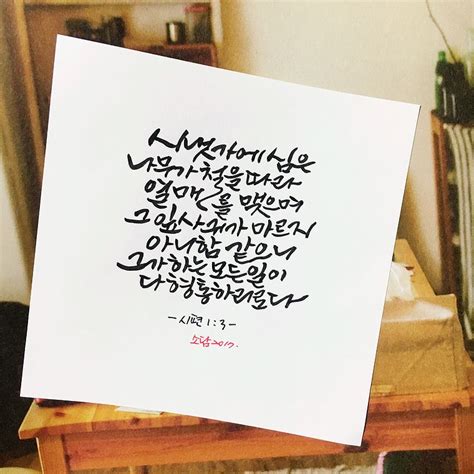 시냇가에 심은
나무가 철을 따라
열매를 맺으며
그 잎사귀가 마르지
아니함 같으니
그가하는 모든일이
다 형통하리로다
-시편 1:3-
소담2017.